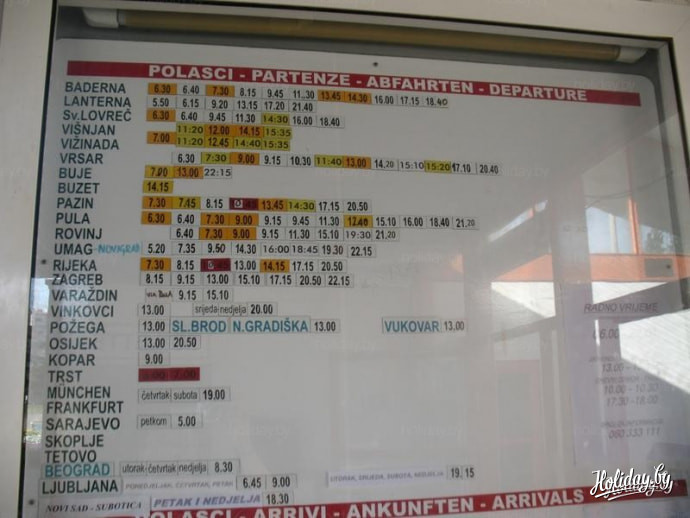 POLASCI - PARTENZE - ABFAHRTEN - DEPARTURE
BADERNA 6.30 6.40 7.30 8.15 9.45 11.30 13.45 14.30 16.00 17.15 18.40
LANTERNA 5.50 6.15 9.20 13.15 17.20 21.40
Sv.LOVREČ 6.30 6.40 9.45 11.30 14:30 16.00 18.40
VIŠNJAN 11:20 12.00 14.15 15:35
VIŽINADA 7.00 11:20 12.45 14:40 15:35
VRSAR 6.30 7:30 9.00 9.15 10.30 11:40 13.00 14.20 15:10 15:20 17.10 20.40
BUJE 7.00 13.00 22:15
BUZET 14.15
PAZIN 7.30 7.45 8.15 13.45 14:30 17.15 20.50
PULA 6.30 6.40 7.30 9.00 9.15 9.45 11.30 12.40 15.10 16.00 18.40 21.20
ROVINJ 6.40 7.30 9.00 9.15 11.30 15.10 19:30 21.20
UMAG -NOVIGRAD 5.20 7.35 9.50 14.30 16:00 18:45 19.30 22.15
RIJEKA 7.30 8.15 13.00 14.15 17.15 20.50
ZAGREB 8.15 9.15 13.00 15.10 17.15 20.50 22.15
VARAŽDIN 9.15 15.10
VINKOVCI 13.00 srijeda nedjelja 20.00
POŽEGA 13.00 SL.BROD N.GRADIŠKA 13.00 VUKOVAR 13.00
OSIJEK 13.00 20.50
KOPAR 9.00
TRST
MÜNCHEN četvrtak subota 19.00
FRANKFURT
SARAJEVO petkom 5.00
SKOPLJE
TETOVO
BEOGRAD utorak-četvrtak nedjelja 8.30
LJUBLJANA PONEDJELJAK, ČETVRTAK, PETAK 6.45 9.00 UTORAK, SRIJEDA, SUBOTA, NEDJELJA 19.15
NOVI SAD - SUBOTICA PETAK I NEDJELJA 18.30
POLASCI - ARRIVI - ANKUNFTEN - ARRIVALS
RADNO VRIJEME
10.00 - 10.30
17.30 - 18.00
060 333 111
Holiday.by